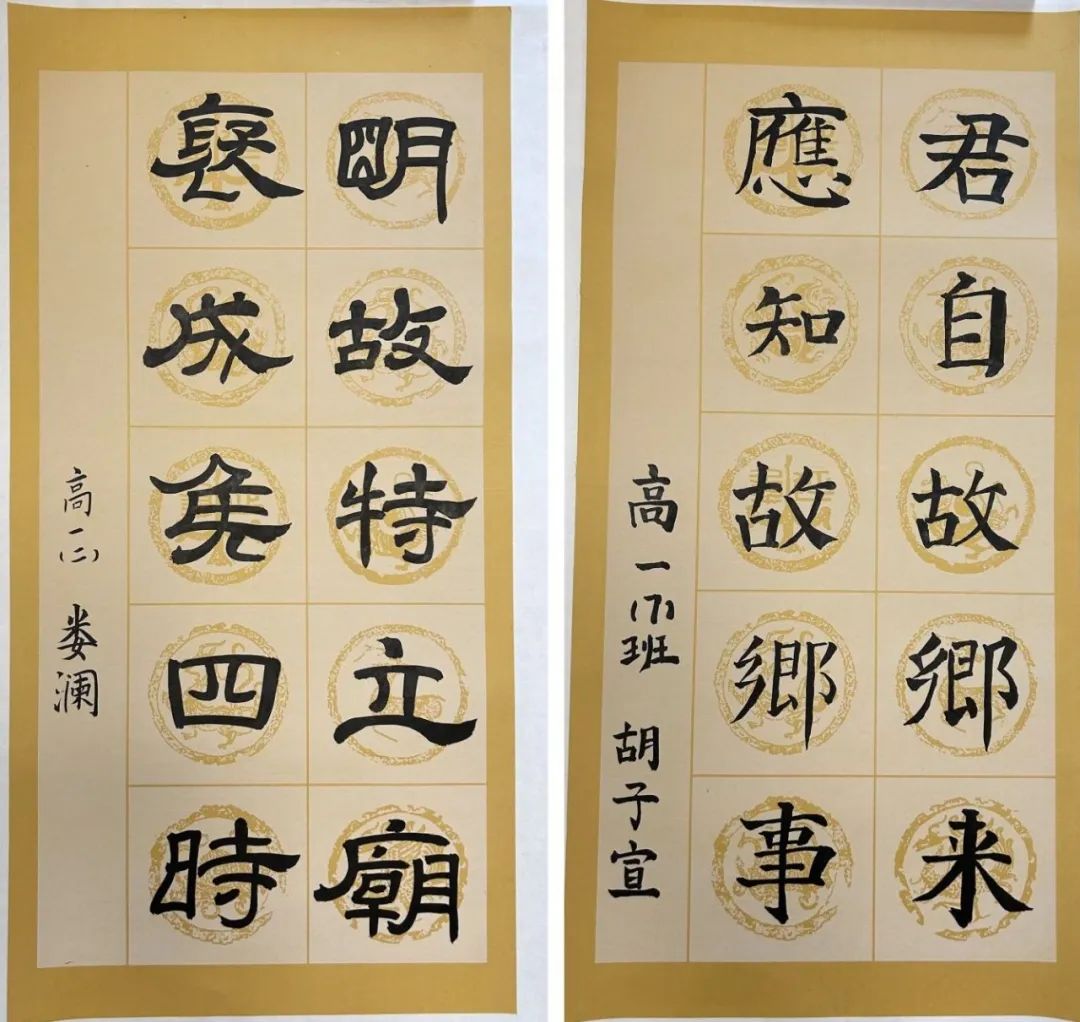 明故特立廟
褒成侯四時
高一(二) 娄澜
君自故鄉来
應知故鄉事
高一(7)班 胡子宣